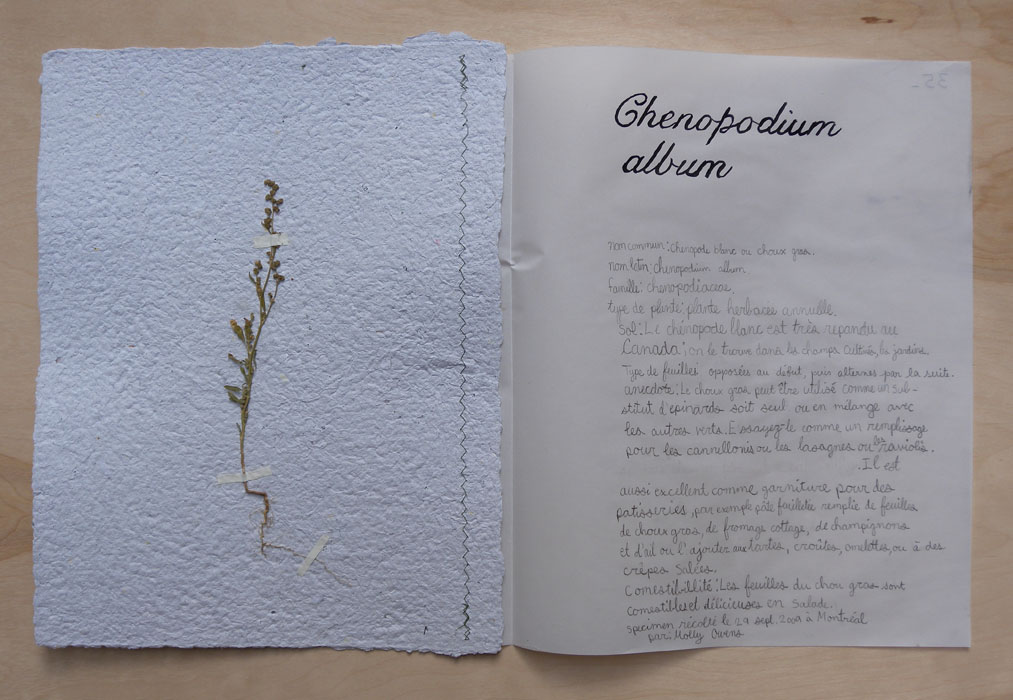 35-
Chenopodium
album
nom commun: Chenopode blanc ou choux gras.
nom latin: chenopodium album
famille: chenopodiaceae,
type de plante: plante herbacée annuelle.
Sol: Le chénopode blanc est très repandu au
Canada; on le trouve dans les champs cultivés, les jardins
Type de feuilles opposées au début, puis alternes par la suite.
anecdote: Le choux gras peut être utilisé comme un sub-
stitut d'épinards soit seul ou en mélange avec
les autres verts. Essayez-le comme un remplissage
pour les cannellonis ou les lasagnes ou les raviolis.
. Il est
aussi excellent comme garniture pour des
patisseries, par exemple pâte feuilletée remplie de feuilles
de choux gras, de fromage cottage, de champignons
et d'ail ou l'ajouter aux tartes, croûtes, omelettes, ou à des
crêpes salées.
Comestibilité: Les feuilles du chou gras sont
comestibles et délicieuses en salade.
specimen récolté le 29 sept. 2009 à Montréal
par: Molly Owens